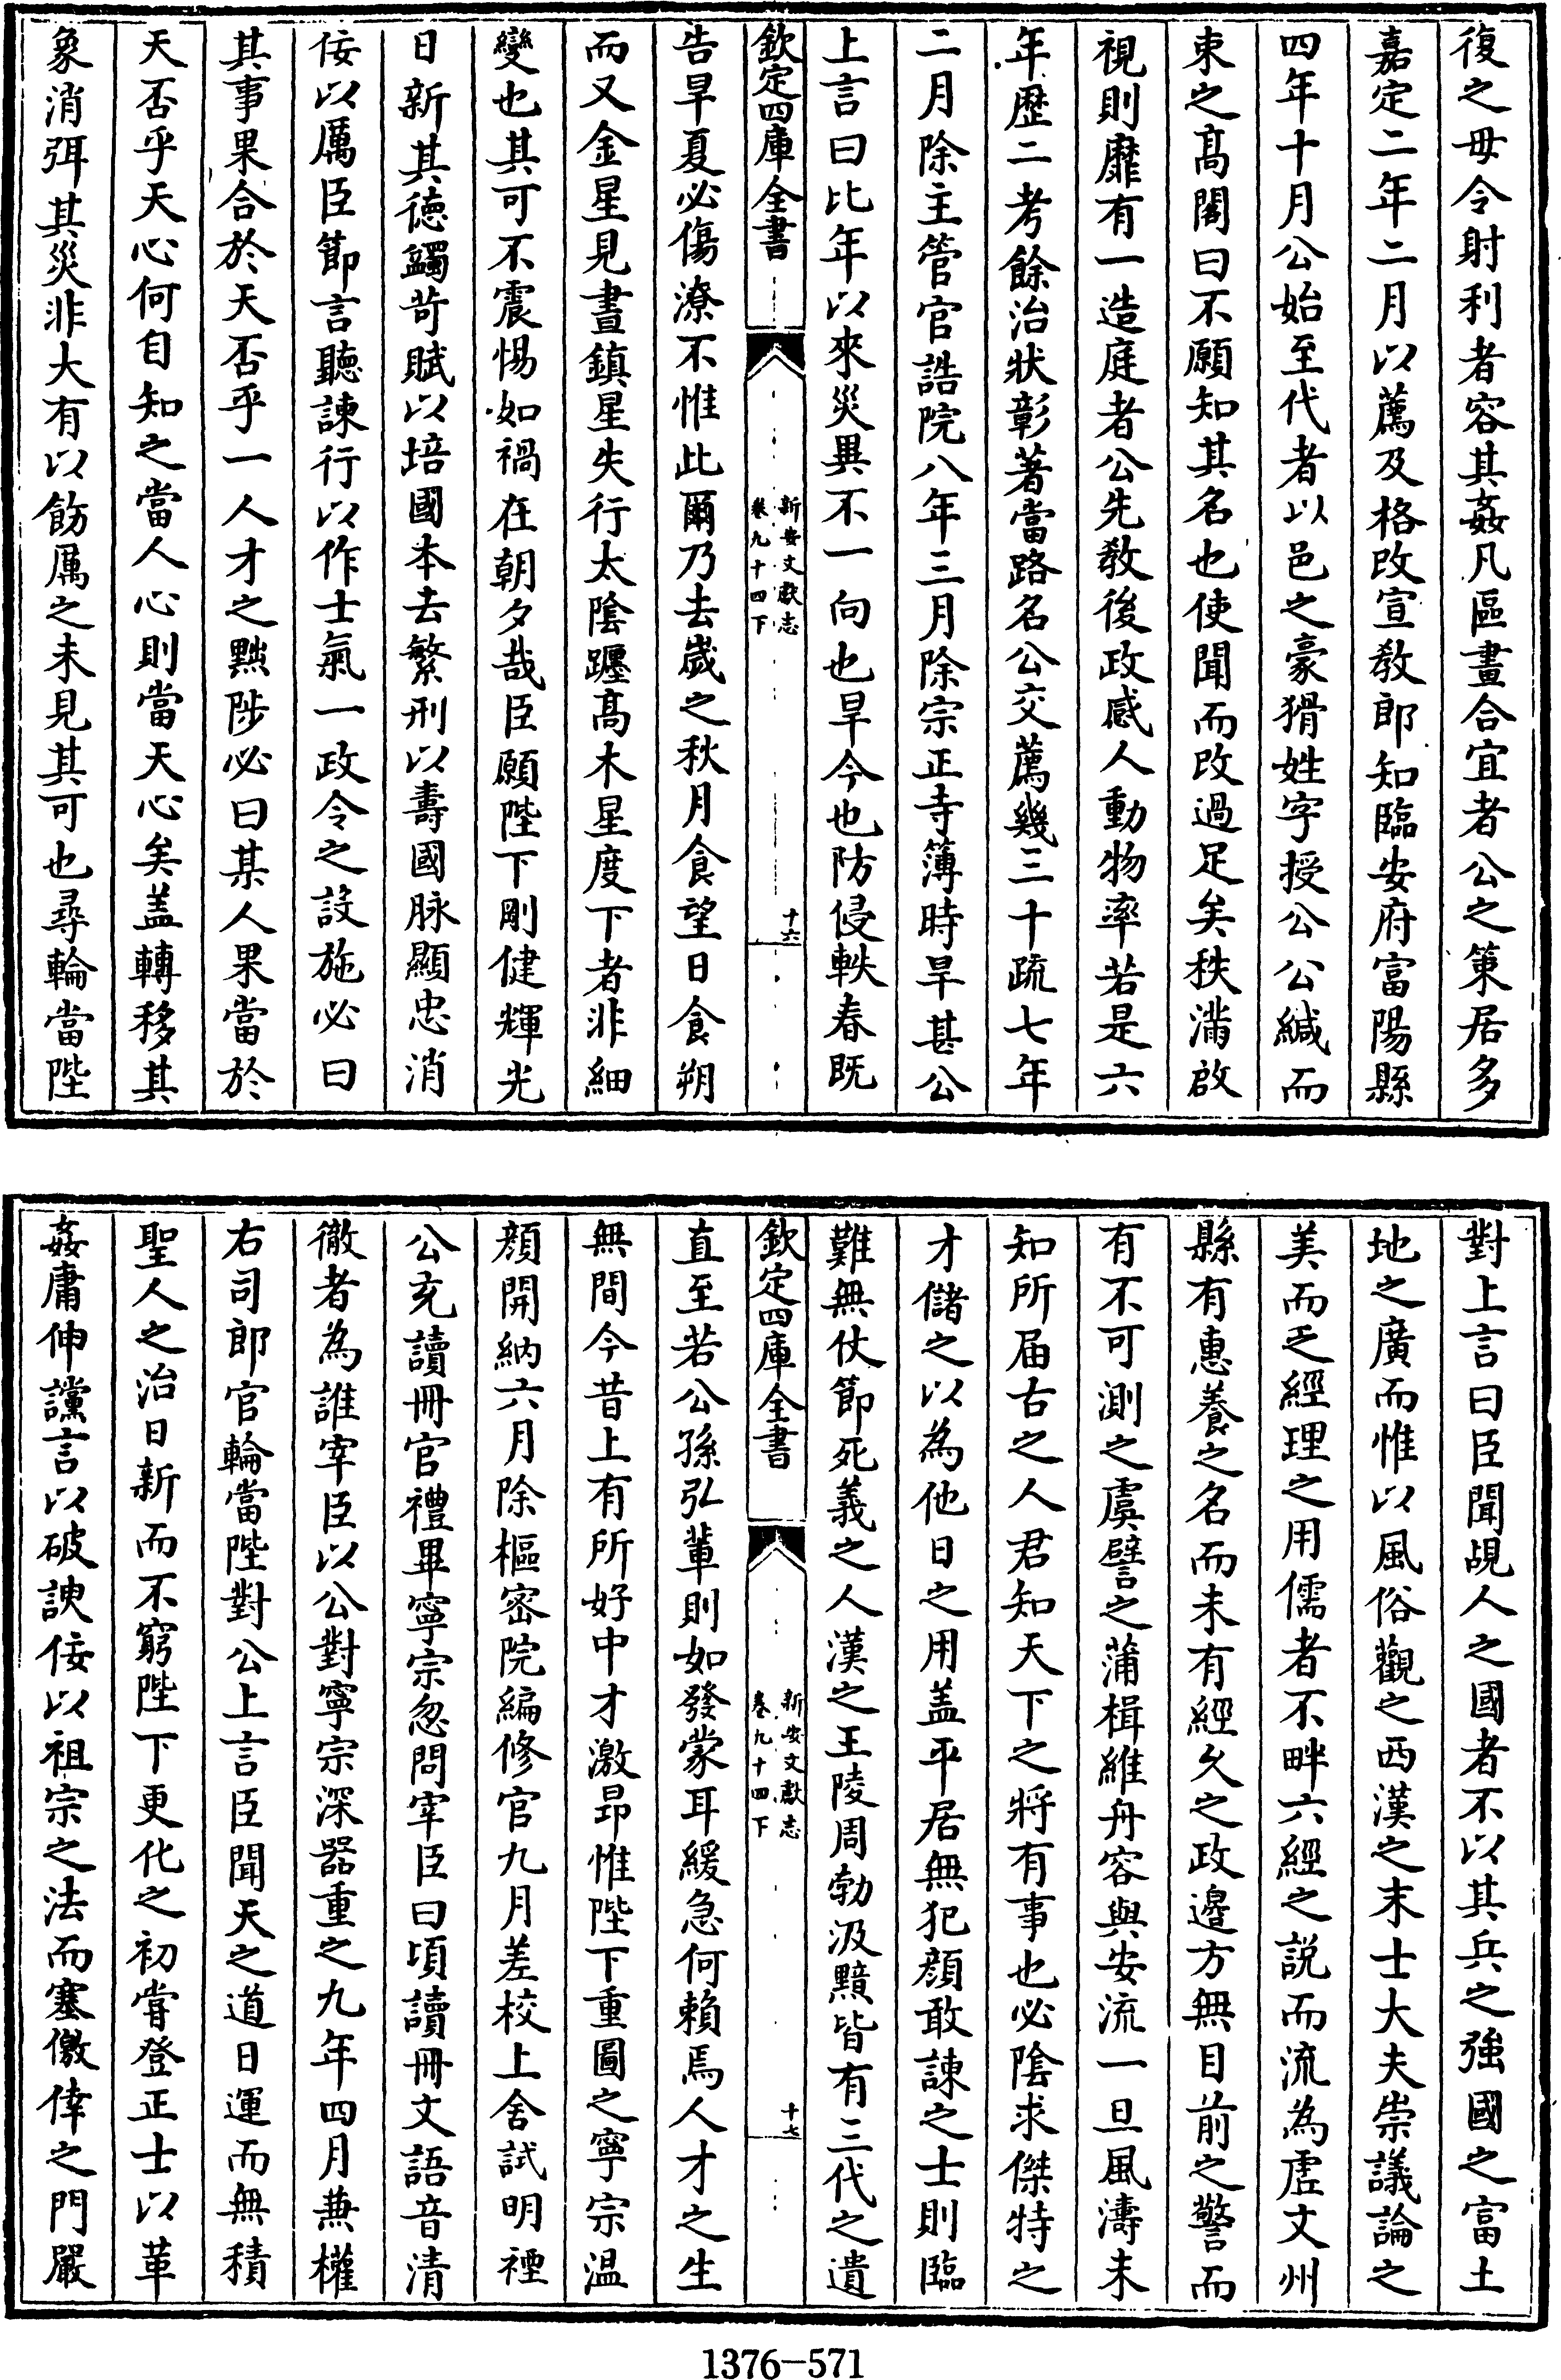 復之毋令射利者容其姦凡區畫合宜者公之策居多
嘉定二年二月以薦及格改宣敎郎知臨安府富陽縣
四年十月公始至代者以邑之豪猾姓字授公公緘而
東之高閣曰不願知其名也使聞而改過足矣秩滿啟
視則靡有一造庭者公先敎後政感人動物率若是六
年歴二考餘治狀彰著當路名公交薦幾三十疏七年
二月除主管官誥院八年三月除宗正寺簿時旱甚公
上言曰比年以來災異不一向也旱今也防侵軼春既
欽定四庫全書
新安文獻志
卷九十四下
十六
告旱夏必傷潦不惟此爾乃去歲之秋月食望日食朔
而又金星見晝鎮星失行太陰躔高木星度下者非細
變也其可不震惕如禍在朝夕哉臣願陛下剛健輝光
日新其德蠲苛賦以培國本去繁刑以壽國脉顯忠消
佞以厲臣節言聽諫行以作士氣一政令之設施必曰
其事果合於天否乎一人才之黜陟必曰某人果當於
天否乎天心何自知之當人心則當天心矣盖轉移其
象消弭其災非大有以飭厲之未見其可也尋輪當陛
對上言曰臣聞覘人之國者不以其兵之強國之富土
地之廣而惟以風俗觀之西漢之末士大夫崇議論之
美而乏經理之用儒者不畔六經之說而流為虛文州
縣有惠養之名而未有經久之政邉方無目前之警而
有不可測之虞譬之蒲楫維舟容與安流一旦風濤未
知所届古之人君知天下之將有事也必陰求傑特之
才儲之以為他日之用盖平居無犯顔敢諫之士則臨
難無仗節死義之人漢之王陵周勃汲黯皆有三代之遺
欽定四庫全書
新安文獻志
卷九十四下
十七
直至若公孫弘輩則如發蒙耳緩急何賴焉人才之生
無間今昔上有所好中才激昻惟陛下重圖之寧宗温
顔開納六月除樞密院編修官九月差校上舍試明禋
公充讀冊官禮畢寧宗忽問宰臣曰頃讀冊文語音清
徹者為誰宰臣以公對寧宗深器重之九年四月兼權
右司郎官輪當陛對公上言臣聞天之道日運而無積
聖人之治日新而不窮陛下更化之初甞登正士以革
姦庸伸讜言以破諛佞以祖宗之法而塞僥倖之門嚴
1376-571